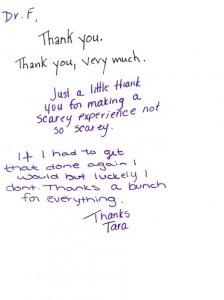 Dr. F,
Thank you.
Thank you, very much.
Just a little thank
you for making a
scarey experience not
so scarey.
If I had to get
that done again I
would but luckely I
dont. Thanks a bunch
for everything.
Thanks
Tara